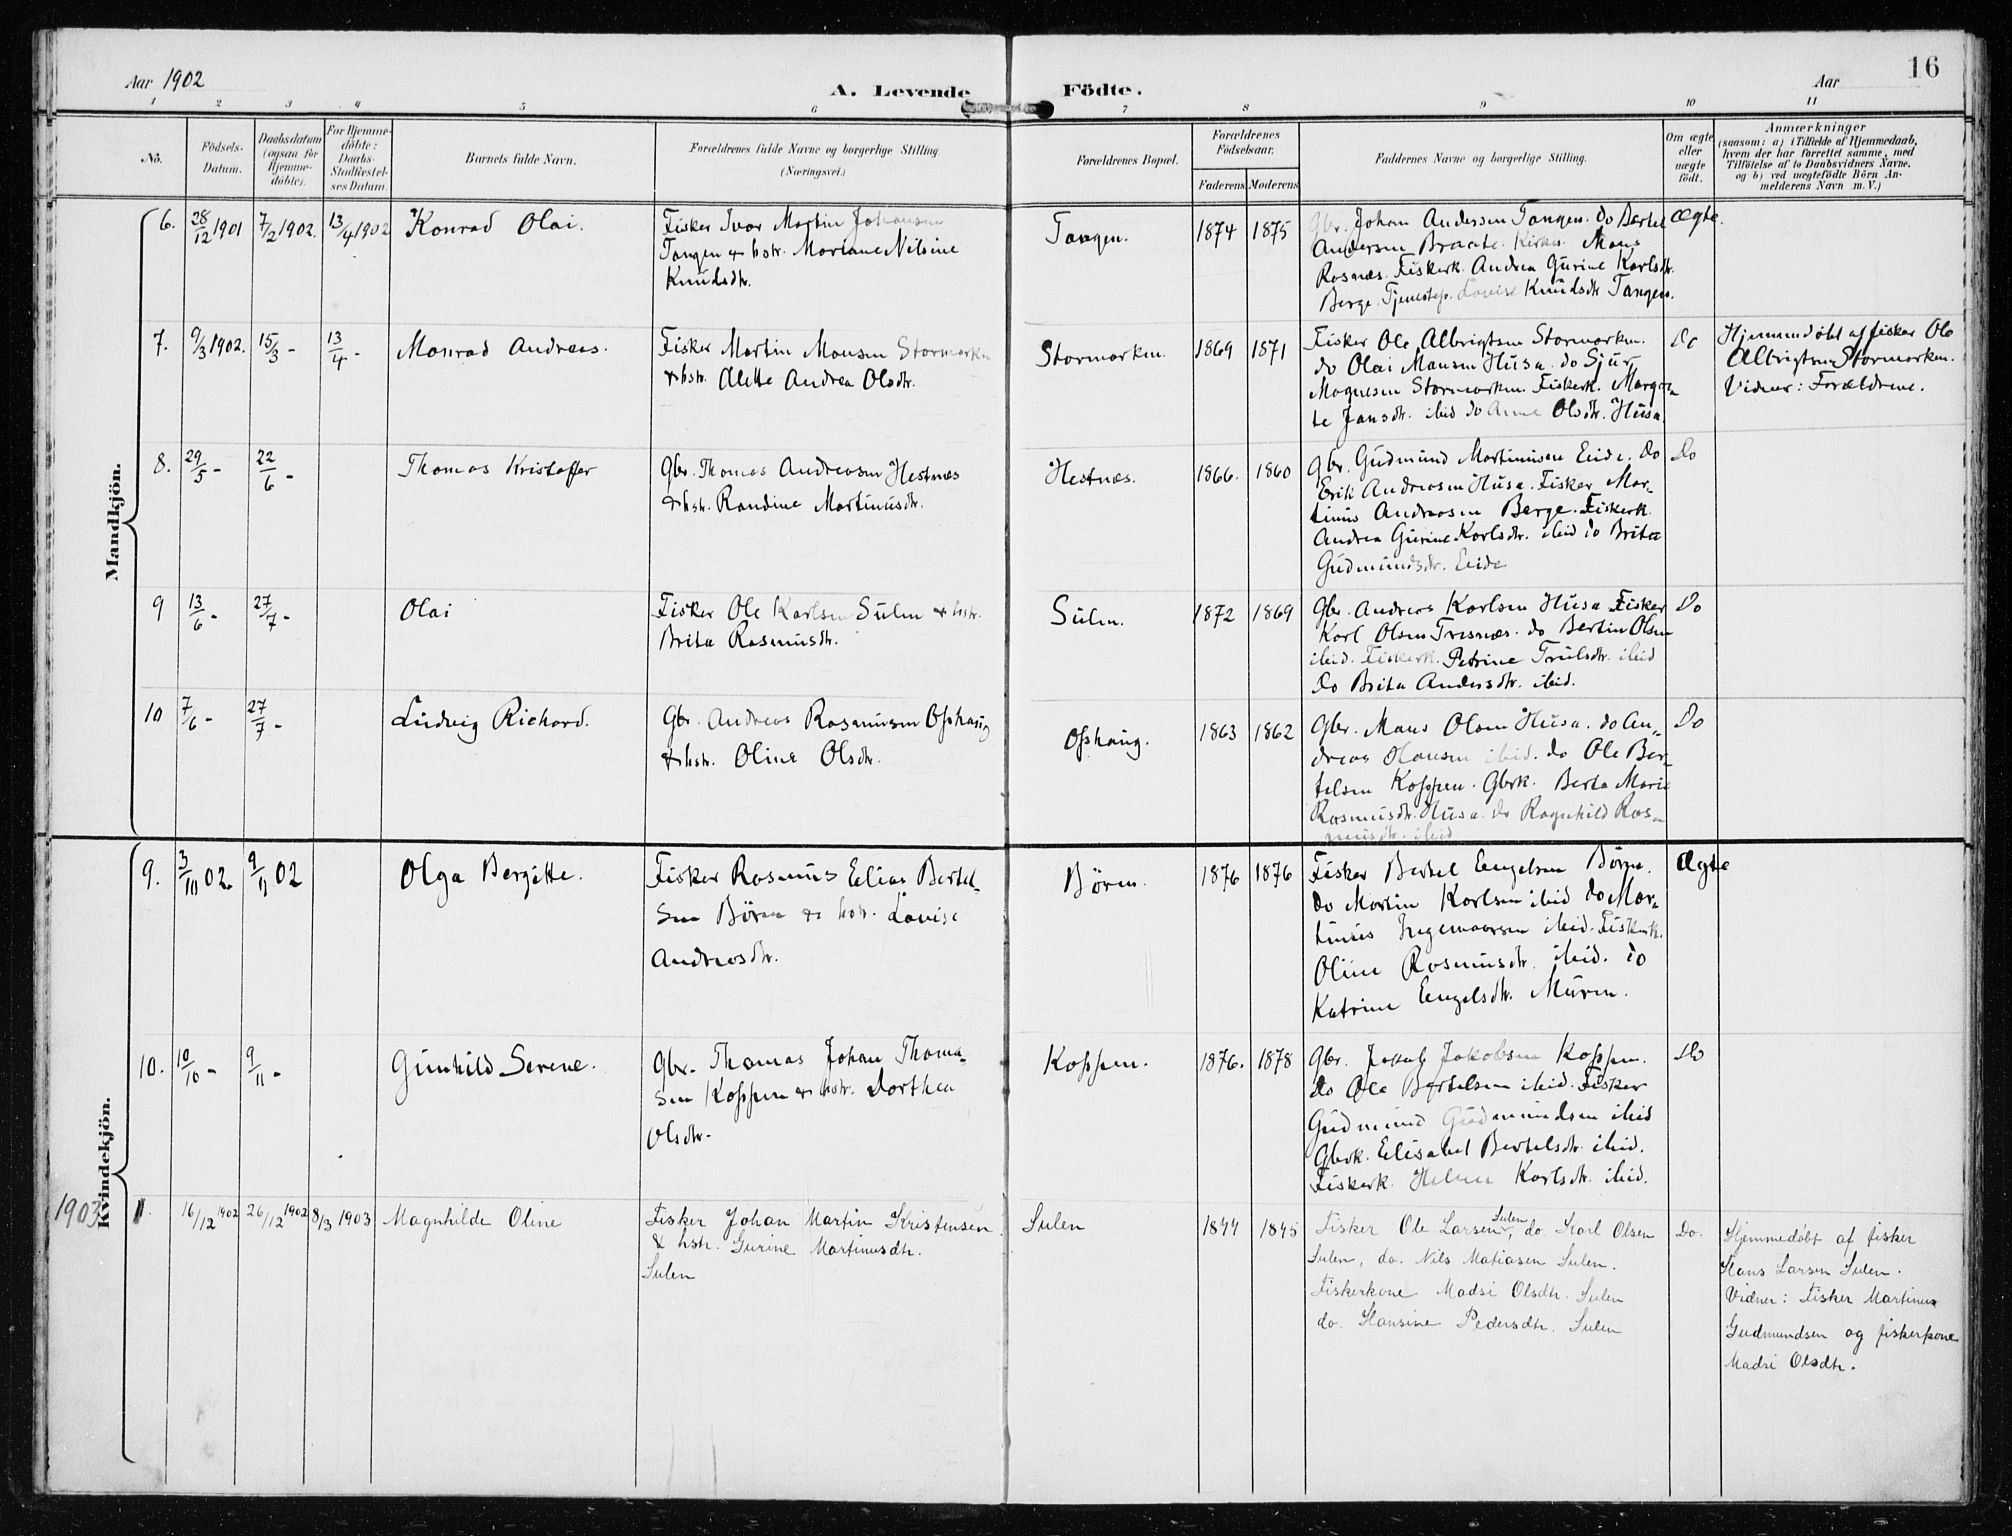 Aar 1902
A. Levende Födte.
Aar
16
1 2 3 4 5 6 7 8 9 10 11
No.
Födsels-
Datum.
Daabsdatum
(ogsaa for
Hjemme-
döbte).
For Hjemme-
döbte:
Daabs-
Stadfæstel-
ses Datum.
Barnets fulde Navn.
Forældrenes fulde Navne og borgerlige Stilling
(Næringsvei.)
Forældrenes Bopæl.
Forældrenes
Födselsaar.
Faderens Moderens
Faddernes Navne og borgerlige Stilling.
Om ægte
eller
uægte
født.
Anmærkninger
(saasom: a) i Tilfælde af Hjemmedaab,
hvem der har forrettet samme, med
Tilföielse af to Daabsvidners Navne,
og b) ved uægtefödte Börn An-
melderens Navn m. V.)
Mandkjön.
6. 28/12 1901 7/2 1902. 13/4 1902 Konrad Olai.
Fisker Ivar Martin Johansen
Tangen & hstr. Mariane Nilsine
Knudsdtr.
Tangen. 1874 1875
Gbr. Johan Andersen Tangen. do Bertel
Andersen Braate. Kirkes. Mons
Rosnæs. Fiskerk. Andrea Gurine Karlsdtr.
Berge. Tjenestep. Lovise Knudsdtr Tangen.
Ægte.
7. 9/3 1902. 15/3 - 13/4 - Monrad Andreas.
Fisker Martin Monsen Stormarken
& hstr. Alette Andrea Olsdtr.
Stormarken. 1869 1871
Fisker Ole Albrigtsen Stormarken.
do Olai Mansen Husa. do Sjur
Magnesen Stormarken. Fiskerk. Margre
te Jansdtr. ibid do Anne Olsdtr. Husa.
Do
Hjemmedøbt af fisker Ole
Albrigtsen Stormarken.
Vidner: Forældrene.
8. 29/5 - 22/6 - Thomas Kristoffer
Gbr. Thomas Andreasen Hestnæs
& hstr. Randine Martinusdtr.
Hestnæs. 1866. 1860
Gbr. Gudmund Martinusen Eide. do
Erik Andreasen Husa. Fisker Mar-
tinus Andreasen Berge. Fiskerk.
Andrea Gurine Karlsdtr. ibid do Brita
Gudmundsdtr. Eide
Do
9 13/6 - 27/7 - Olai
Fisker Ole Karlsen Sulen & hstr.
Brita Rasmusdtr.
Sulen. 1872 1869
Gbr. Andreas Karlsen Husa Fisker
Karl Olsen Tresnæs. do Bertin Olsen
ibid. Fiskerk. Petrine Trulsdtr. ibid
do Brita Andersdtr. ibid.
Do
10 7/6 - 27/7 - Ludvig Richard.
Gbr. Andreas Rasmusen Opshaug
& hstr. Oline Olsdtr.
Opshaug. 1863 1862
Gbr. Mans Olsen Husa. do An-
dreas Hansen ibid. do Ole Ber-
telsen Koppen. Gbrk. Berta Marie
Rasmusdtr. Husa. do Ragnhild Ras-
musdtr. ibid
Do
Kvindekjön.
9. 3/10 02. 9/11 02 Olga Bergitte.
Fisker Rasmus Elias Bertel-
sen Børen & hstr. Lovise
Andreasdtr.
Børen. 1876 1876
Fisker Bertel Engelsen Børen.
do Martin Karlsen ibid do Mar-
tinus Ingemarsen ibid. Fiskerk.
Oline Rasmusdtr. ibid. do
Katrine Engelsdtr. Muren.
Ægte
10. 10/10 - 9/11 - Gunhild Serene.
Gbr. Thomas Johan Thoma-
sen Koppen & hstr. Dorthea
Olsdtr.
Koppen. 1876. 1878
Gbr. Jakob Jakobsen Koppen.
do Ole Bertelsen ibid. Fisker
Gudmund Gudmundsen ibid
Gbrk. Elisabet Bertelsdtr. ibid.
Fiskerk. Helene Karlsdtr. ibid.
Do
1903 11. 16/12 1902 26/12 1902 8/3 1903 Magnhilde Oline
Fisker Johan Martin Kristensen
& hstr. Gurine Martinusdtr.
Sulen
Sulen 1844 1845
Fisker Ole Larsen Sulen, do. Karl Olsen
Sulen, do. Nils Matiasen Sulen.
Fiskerkone Madsi Olsdtr. Sulen
do. Hansine Pedersdtr. Sulen
Do.
Hjemmedøbt af fisker
Hans Larsen Sulen.
Vidner: Fisker Martinus
Gudmundsen og fiskerkone
Madsi Olsdtr.